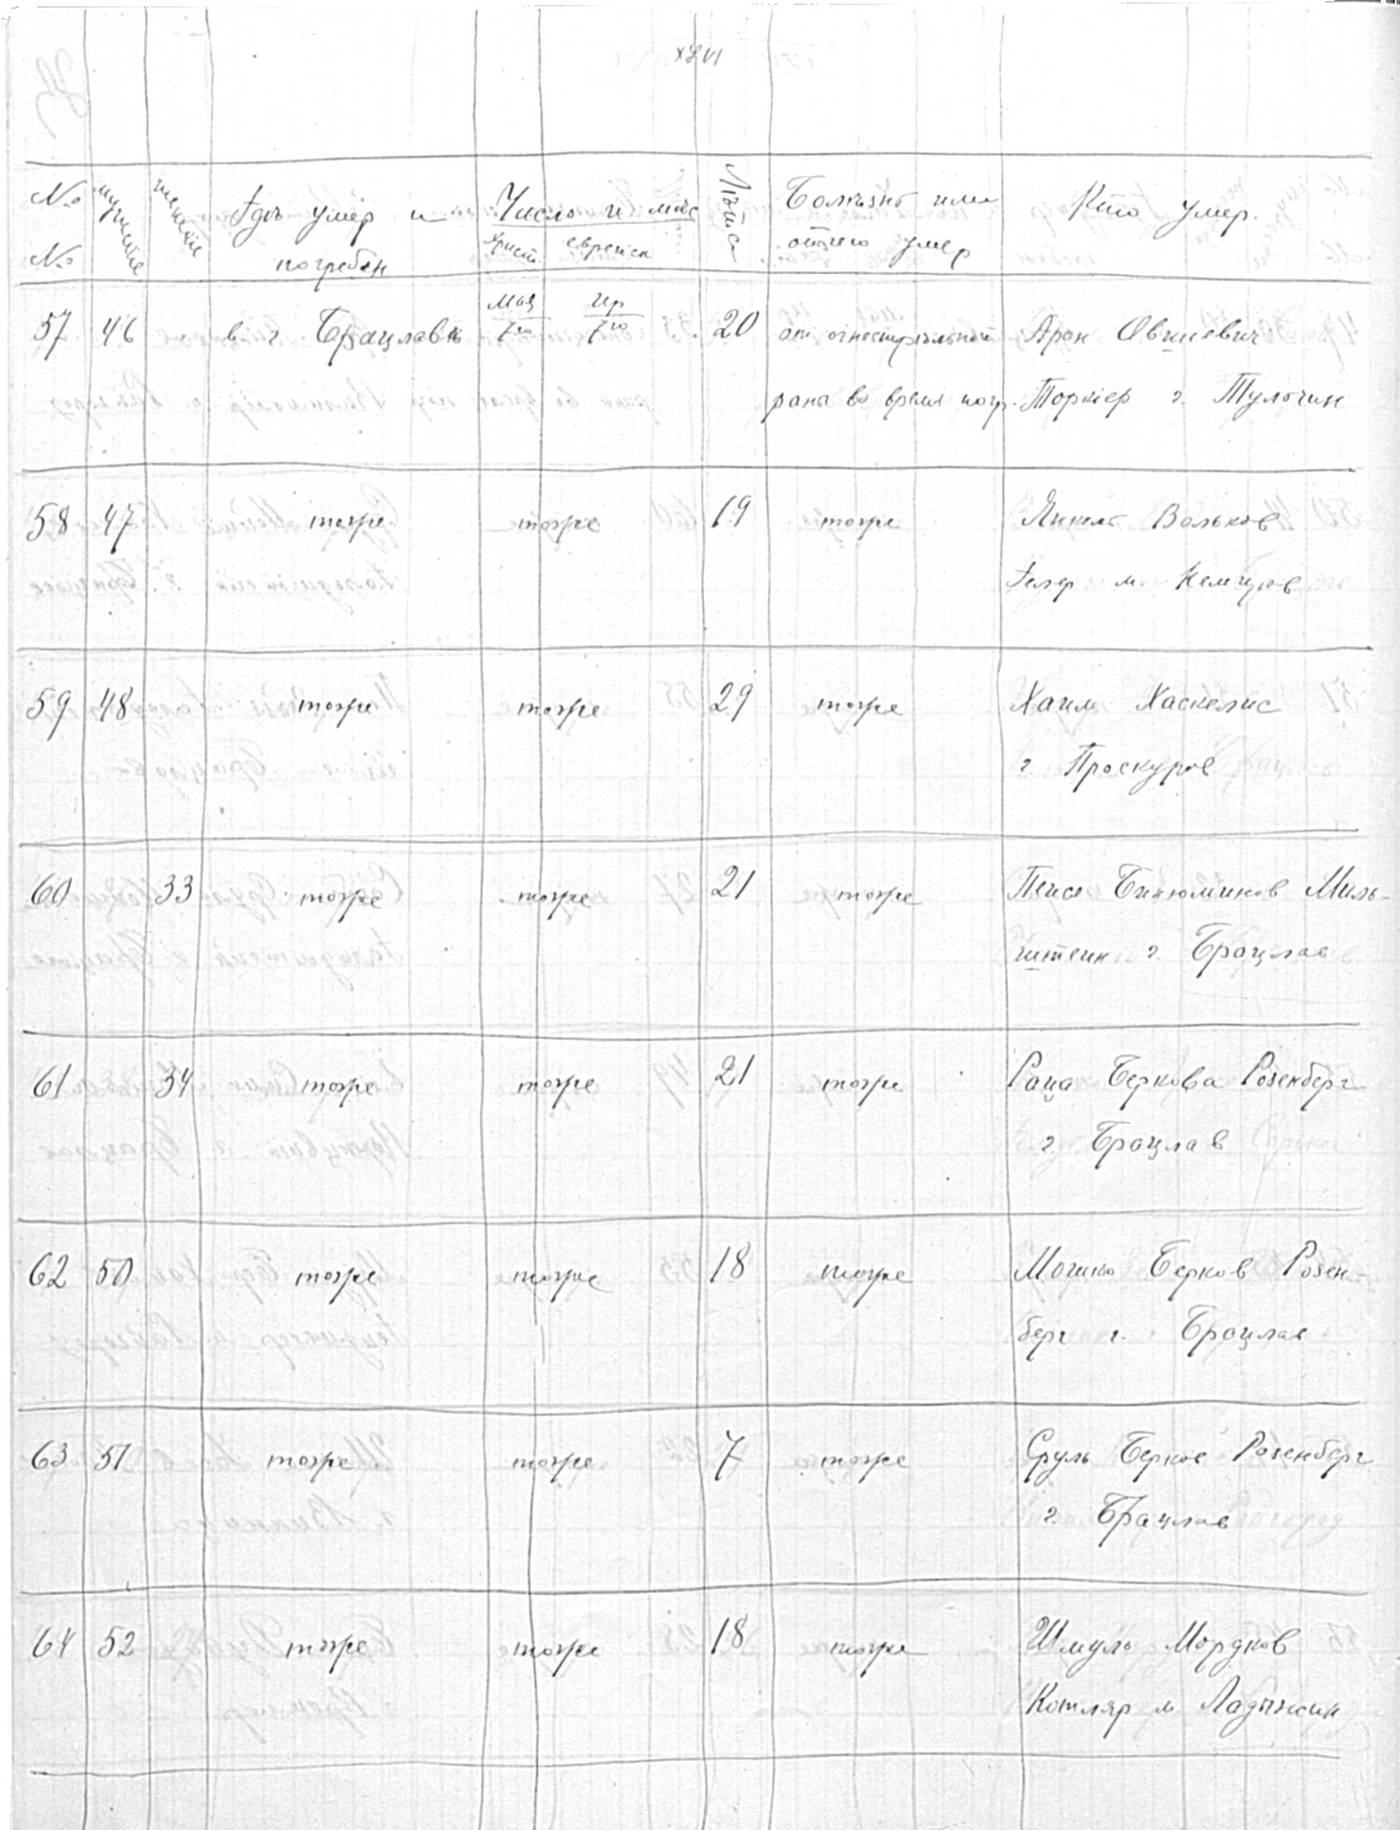 XLVI
№ № мужескіе женскіе Гдѣ умер и погребен Число и мѣс христ. еврейск Лѣта Болѣзнь или отчего умер Кто умер.
57 46 в г Брацлавѣ Мая 7го Ир 7го 20 от огнестрѣльной Арон Овшиевич
рана во время погр. Торкіер г. Тульчин
58 47 тоже тоже 19 тоже Янкель Вольков
Гелер м. Немиров
59 48 тоже тоже 29 тоже Хаим Хаскелис
г Проскуров
60 33 тоже тоже 21 тоже Пейся Бинюминов Миль-
штейн г. Брацлав
61 34 тоже тоже 21 тоже Раца Беркова Розенберг
г. Брацлав
62 50 тоже тоже 18 тоже Мошко Берков Розен-
берг г. Брацлав
63 51 тоже тоже 7 тоже Сруль Берков Розенберг
г. Брацлав
64 52 тоже тоже 18 тоже Шмуль Мордков
Котляр м Ладыжин